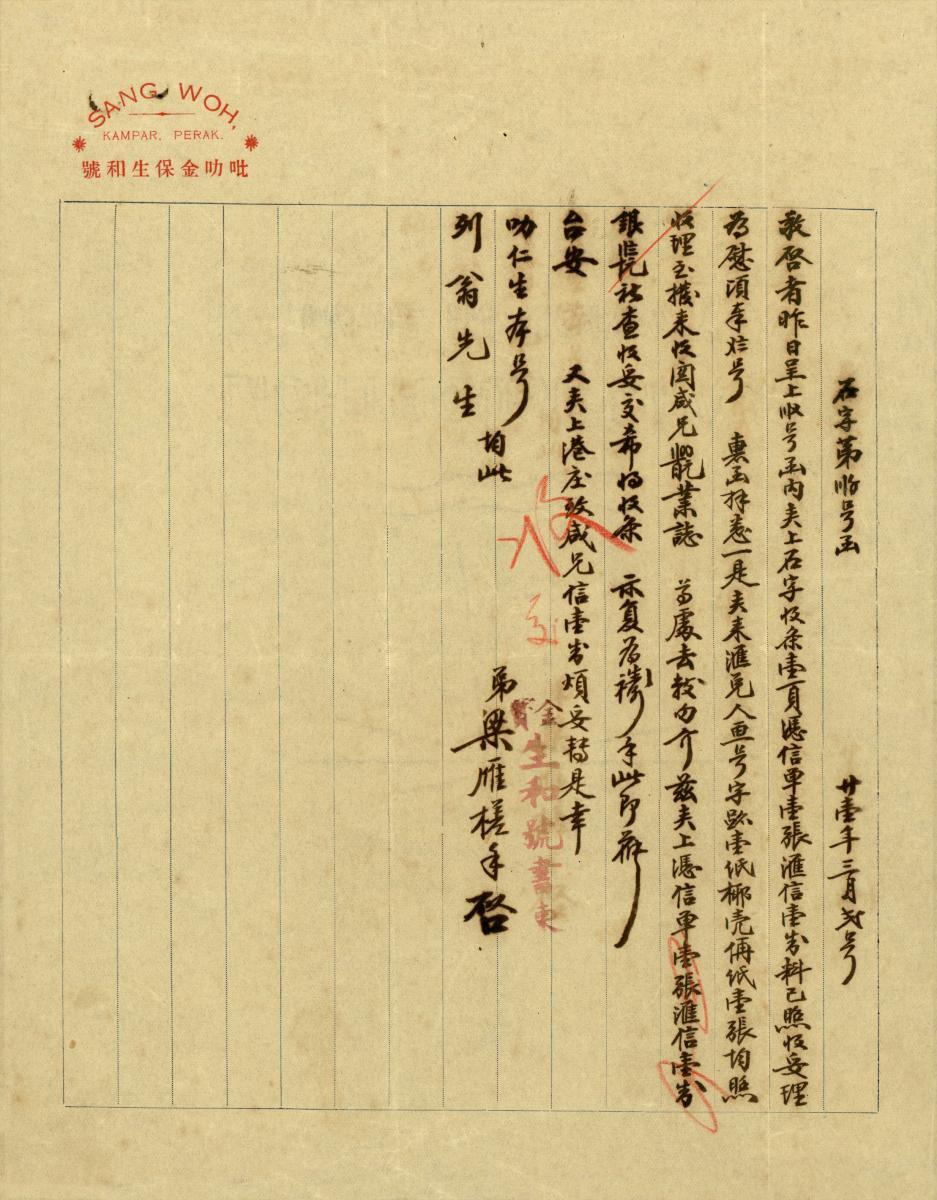 SANG WOH,
KAMPAR, PERAK.
號和生保金叻吡
石字第 号函 廿壹年三月 号
敬啓者昨日呈上 号函内夹上石字收条壹頁憑信單壹張滙信壹封料已照收妥理
為慰頃奉 号 惠函拜悉一是夹来滙兑人 号字 壹纸椰壳俩纸壹張均照
收理至攙来收関咸兄 業誌 尊處去 兹夹上憑信單壹張滙信壹封
銀 祈查收妥交希将收条 示复為祷手此即頌
台安 又夹上港庄致咸兄信壹封煩妥轉是幸
叻仁生本号
列翁先生 均此 弟梁雁槎手啓
收
交
金寶
生和號書柬